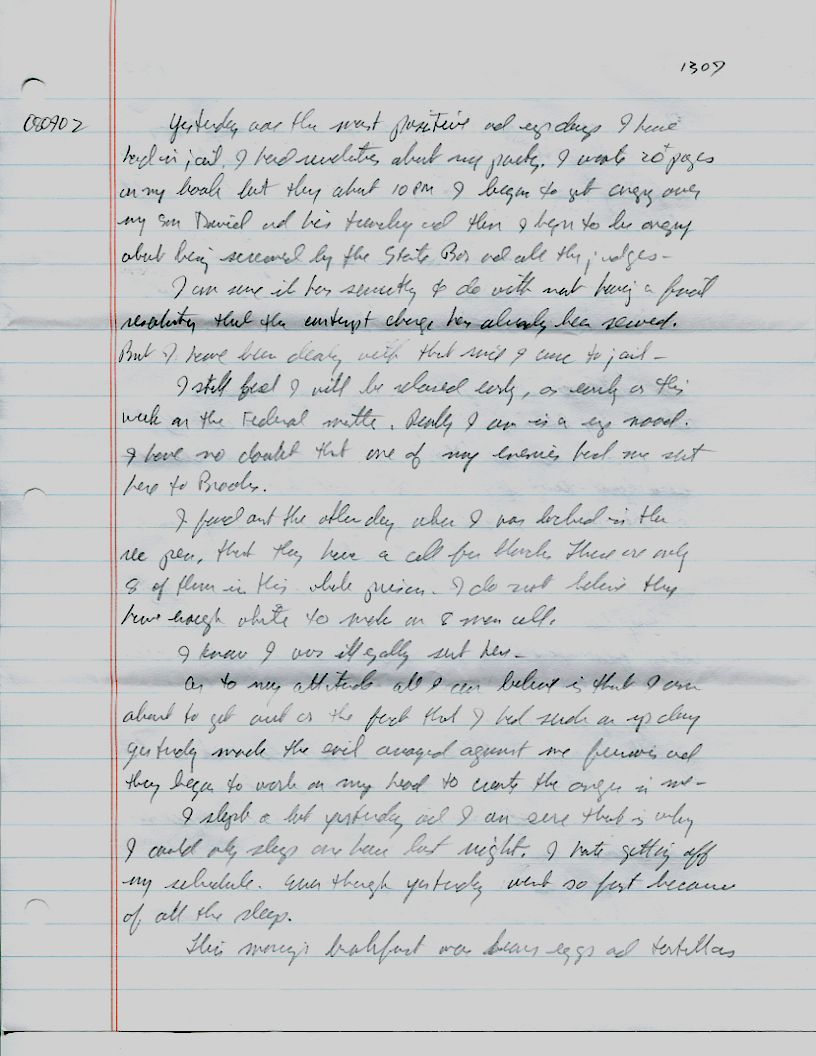 1307
080902
Yesterday was the most positive ad up days I have
had in jail. I had revelation about my party. I wrote 20+ pages
on my book but then about 10 PM I began to get angry over
my son David ad his ad then I began to be angry
about being screwed by the State Bar ad all the judges-
I am sure it has something to do with not having a final
resolution that the contempt charge has already been served.
But I have been dealing with that since I came to jail-
I still feel I will be released early, as early as this
week on the Federal matter. Really I am in a up mood.
I have no doubt that one of my enemies had me sent
here to Brooks.
I found out the other day when I was locked in the
rec pen, that they have a cell for blacks There are only
8 of them in this whole prison. I do not believe they
have enough white to make an 8 man cell.
I know I was illegally sent here-
As to my attitude all I can believe is that I am
about to get out or the fact that I had such an up day
yesterday made the evil arrayed against me furious ad
they began to work on my head to create the anger in me-
I slept a lot yesterday ad I am sure that is why
I could only sleep one hour last night. I hate getting off
my schedule. Even though yesterday went so fast because
of all the sleep.
This morning's breakfast was beans eggs ad tortillas